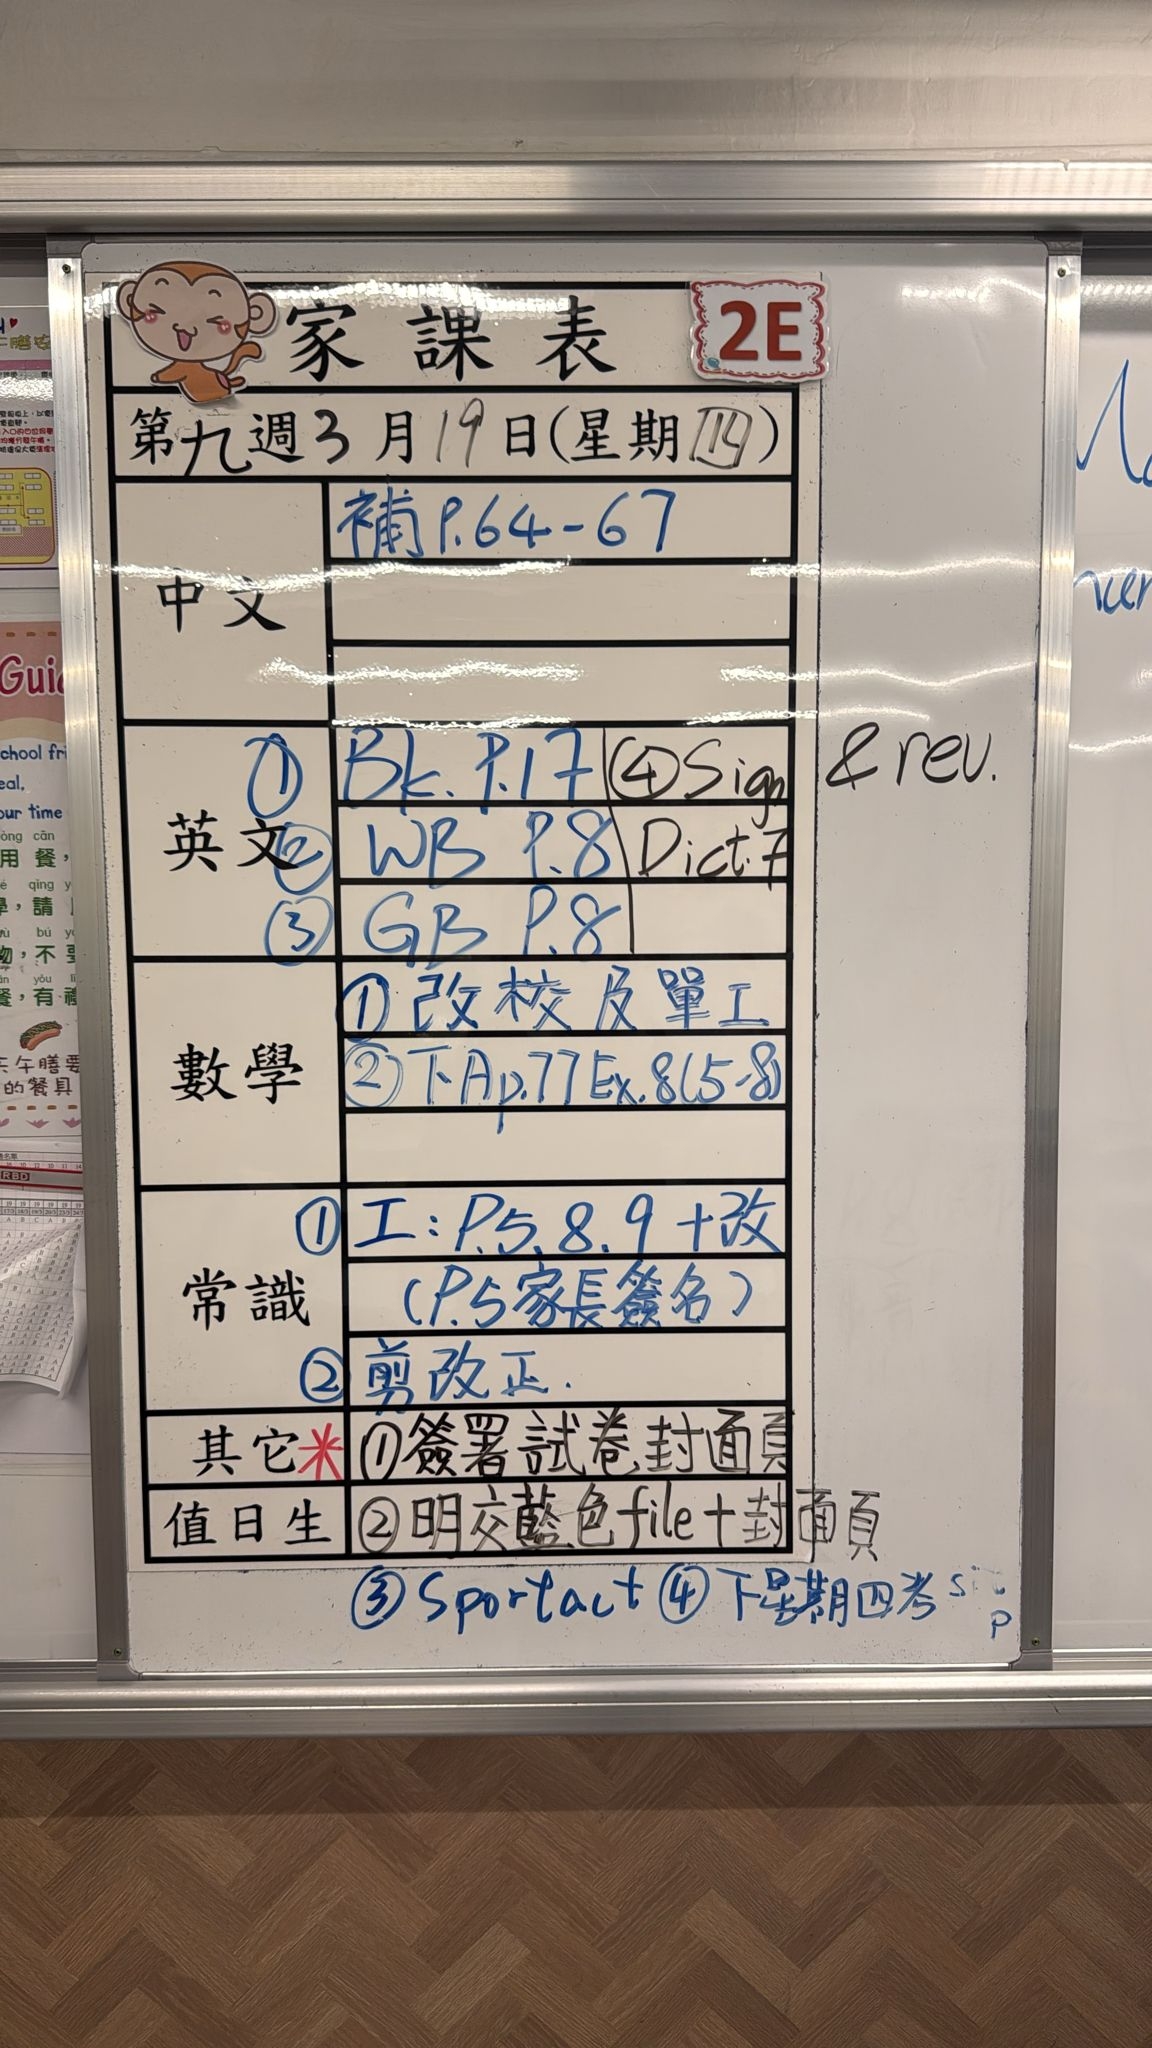 家課表 2E
第九週3月19日(星期四)
中文
補P.64-67
英文
① Bk. P.17
② WB P.8
③ GB P.8
④ Sign & rev.
Dict.7
數學
①改校及單工
②下A p.77 Ex.8(5-8)
常識
①工:P.5.8.9+改
(P.5家長簽名)
②剪改正.
其它 ①簽署試卷封面頁
值日生 ②明交藍色file+封面頁
③Sport act ④下星期四考
P
Guid
chool fri
eal,
our time
òng cān
用餐,
qǐng
請
bú
物,不要
yǒu
餐,有禮
午膳要
的餐具
RBD